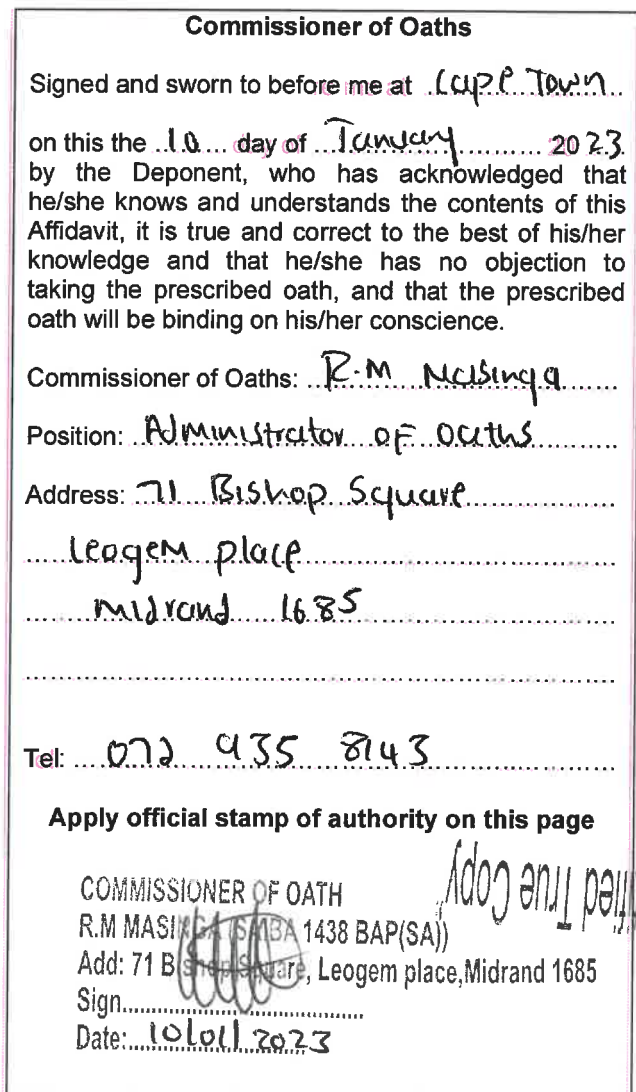 Commissioner of Oaths
Signed and sworn to before me at Cape Town
on this the 10 day of January 2023
by the Deponent, who has acknowledged that
he/she knows and understands the contents of this
Affidavit, it is true and correct to the best of his/her
knowledge and that he/she has no objection to
taking the prescribed oath, and that the prescribed
oath will be binding on his/her conscience.
Commissioner of Oaths: R.M Masinga
Position: Administrator of oaths
Address: 71 Bishop Square
Leogem place
Midrand 1685
Tel: 072 935 8143
Apply official stamp of authority on this page
True Copy
COMMISSIONER OF OATH
R.M MASINGA (SAIBA 1438 BAP(SA))
Add: 71 Bishop Square, Leogem place,Midrand 1685
Sign
Date: 10/01/2023